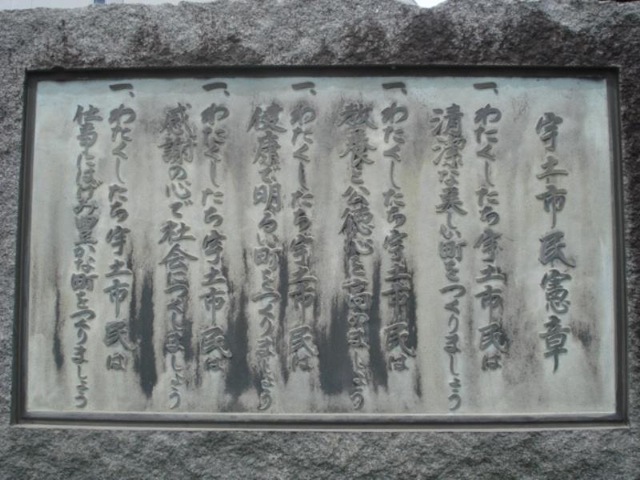 宇土市民憲章
一、わたくしたち宇土市民は
清潔な美しい町をつくりましょう
一、わたくしたち宇土市民は
教養と公徳心を高めましょう
一、わたくしたち宇土市民は
健康で明るい町をつくりましょう
一、わたくしたち宇土市民は
感謝の心で社会につくしましょう
一、わたくしたち宇土市民は
仕事にはげみ豊かな町をつくりましょう